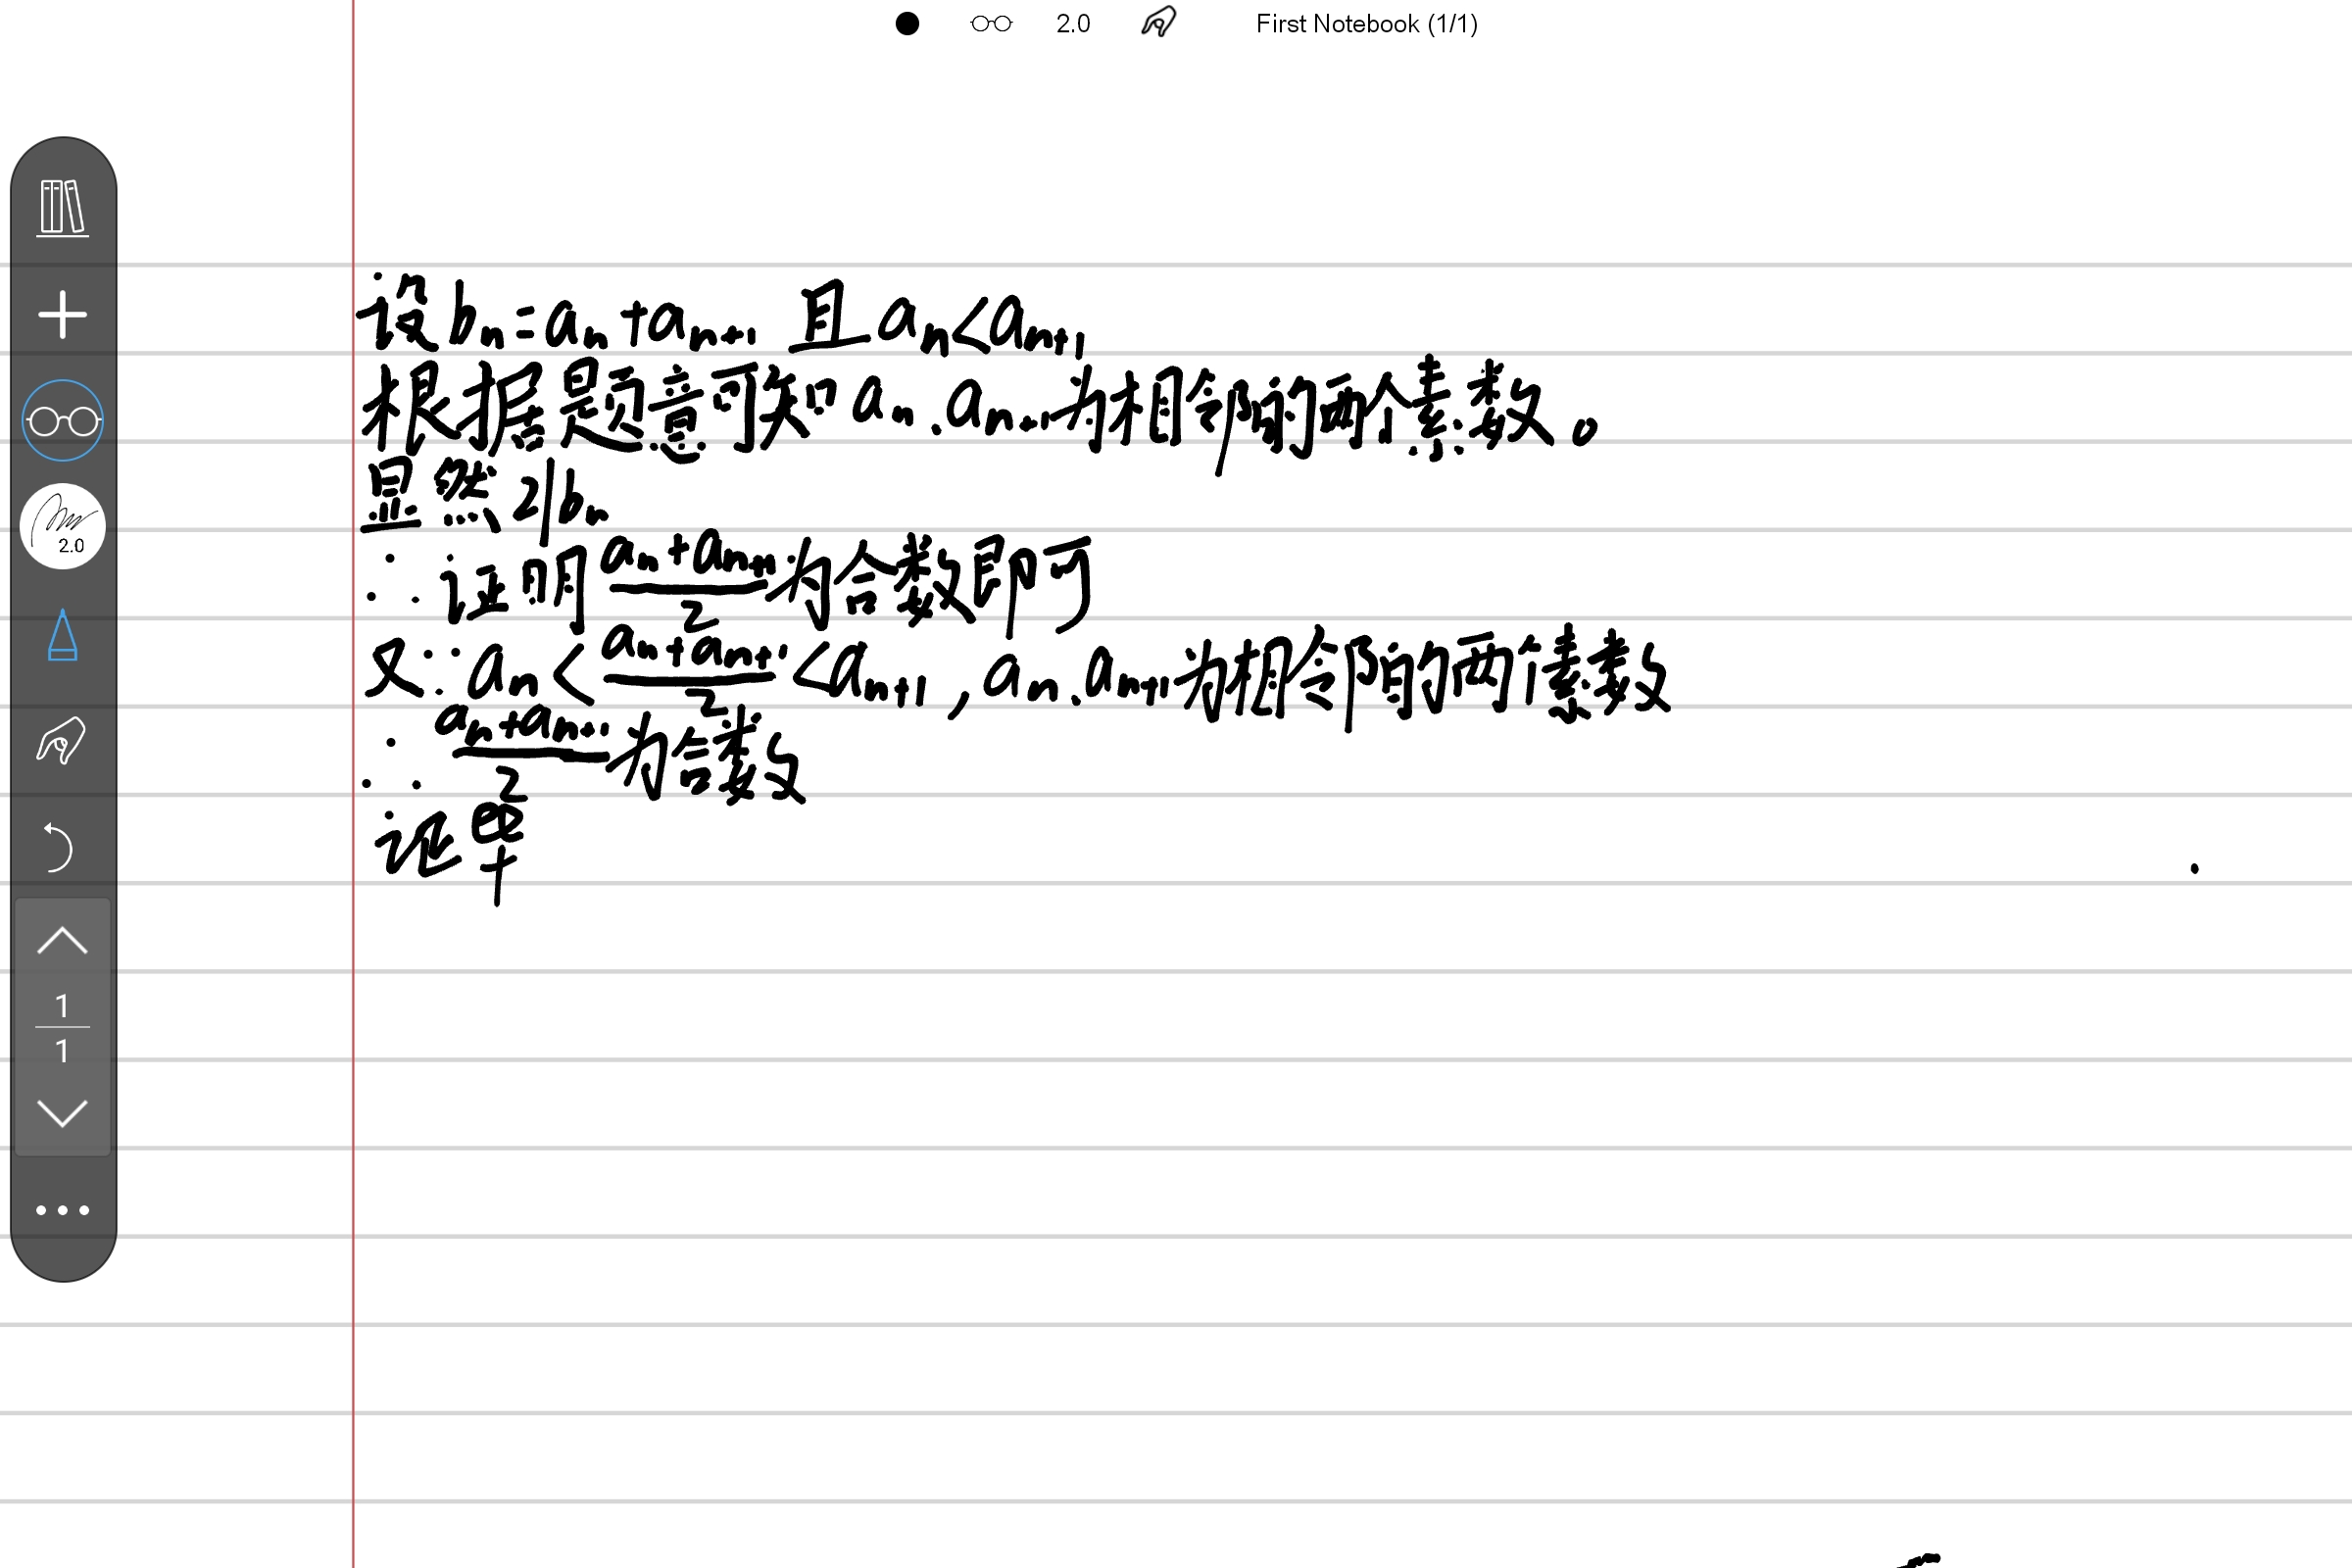 2.0 First Notebook (1/1)
设 bₙ=aₙ+aₙ₊₁ 且 aₙ<aₙ₊₁
根据题意可知 aₙ.aₙ₊₁为相邻的两个素数。
显然 2|bₙ
∴证明 (aₙ+aₙ₊₁)/2 为合数即可
又∵aₙ<(aₙ+aₙ₊₁)/2<aₙ₊₁, aₙ.aₙ₊₁为相邻的两个素数
∴(aₙ+aₙ₊₁)/2 为合数
证毕
2.0
1
1